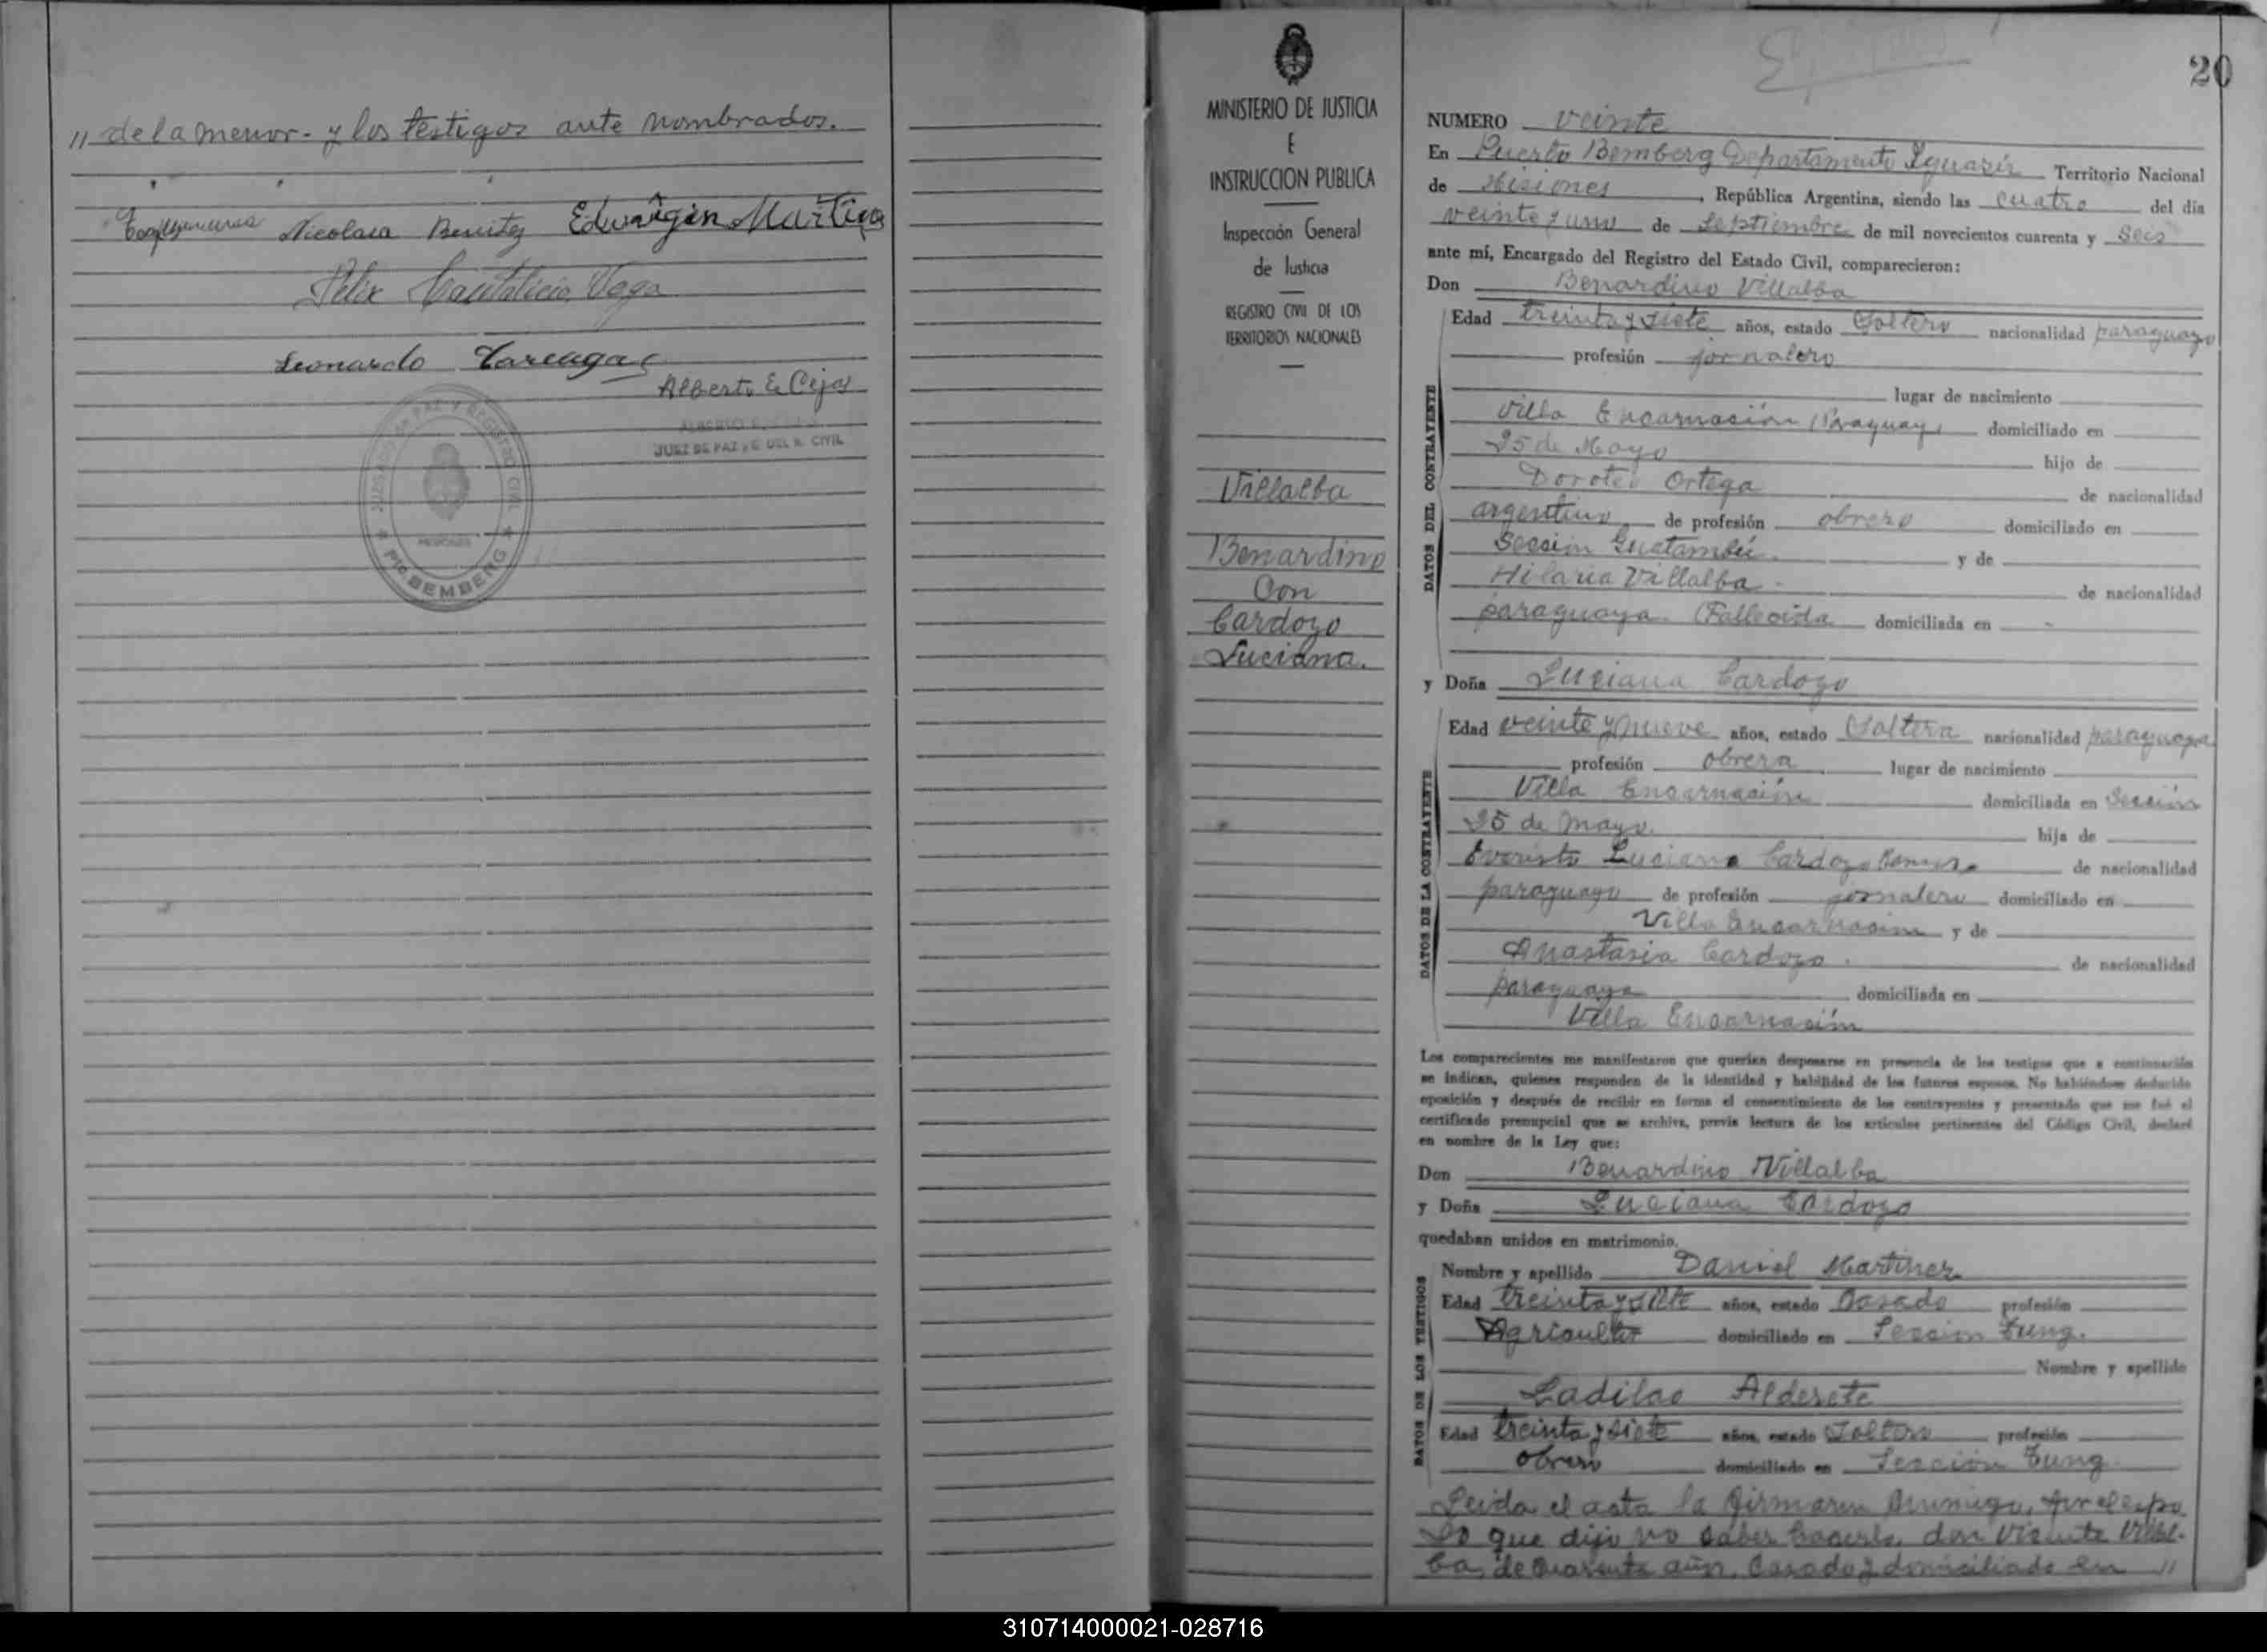 // de la menor - y los testigos ante nombrados.
Nicolasa Benitez Eduvigen Martinez
Felix Vega
Leonardo
Alberto E. Cejas
JUEZ DE PAZ Y E. DEL R. CIVIL
JUZGADO DE PAZ Y REGISTRO CIVIL
MISIONES
PTO. BEMBERG
MINISTERIO DE JUSTICIA
E
INSTRUCCION PUBLICA
Inspección General
de Justicia
REGISTRO CIVIL DE LOS
TERRITORIOS NACIONALES
Villalba
Benardino
Con
Cardozo
Luciana.
20
NUMERO veinte
En Puerto Bemberg Departamento Iguazú Territorio Nacional
de Misiones, República Argentina, siendo las cuatro del día
veinte y uno de Septiembre de mil novecientos cuarenta y seis
ante mí, Encargado del Registro del Estado Civil, comparecieron:
Don Benardino Villalba
Edad treinta y siete años, estado Soltero nacionalidad paraguayo
profesión jornalero
lugar de nacimiento
Villa Encarnación (Paraguay) domiciliado en
25 de Mayo hijo de
Doroteo Ortega de nacionalidad
argentino de profesión obrero domiciliado en
Sección Guatambú. y de
Hilaria Villalba - de nacionalidad
paraguaya (Fallecida domiciliada en -
DATOS DEL CONTRAYENTE
y Doña Luciana Cardozo
Edad veinte y nueve años, estado Soltera nacionalidad paraguaya
profesión obrera lugar de nacimiento
Villa Encarnación domiciliada en Sección
25 de Mayo. hija de
Evaristo Luciano Cardozo de nacionalidad
paraguayo de profesión jornalero domiciliado en
Villa Encarnación y de
Anastasia Cardozo. de nacionalidad
paraguaya domiciliada en
Villa Encarnación
DATOS DE LA CONTRAYENTE
Los comparecientes me manifestaron que querían desposarse en presencia de los testigos que a continuación
se indican, quienes responden de la identidad y habilidad de los futuros esposos. No habiéndose deducido
oposición y después de recibir en forma el consentimiento de los contrayentes y presentado que me fué el
certificado prenupcial que se archiva, previa lectura de los artículos pertinentes del Código Civil, declaré
en nombre de la Ley que:
Don Benardino Villalba
y Doña Luciana Cardozo
quedaban unidos en matrimonio.
Nombre y apellido Daniel Martinez
Edad treinta y siete años, estado Casado profesión
Agricultor domiciliado en Sección Tung.
Nombre y apellido
Ladilao Alderete
Edad treinta y siete años, estado Soltero profesión
obrero domiciliado en Sección Tung.
DATOS DE LOS TESTIGOS
Leida el acta la firmaron conmigo, por el espo
so que dijo no saber hacerlo, don Vicente Villal-
ba, de cuarenta años, casado y domiciliado en //
310714000021-028716